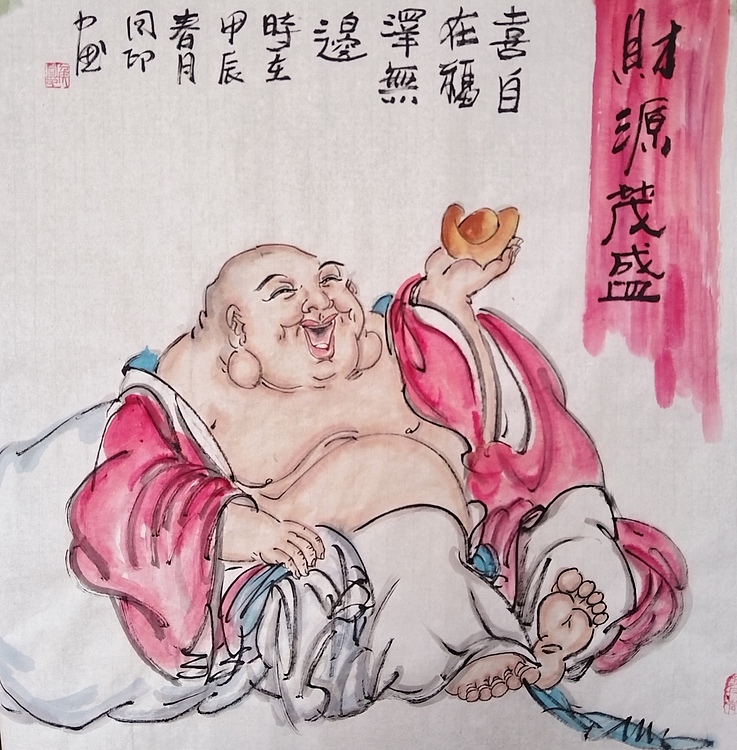 財源茂盛
喜自
在福
澤無
邊
時在
甲辰
春月
同印
画